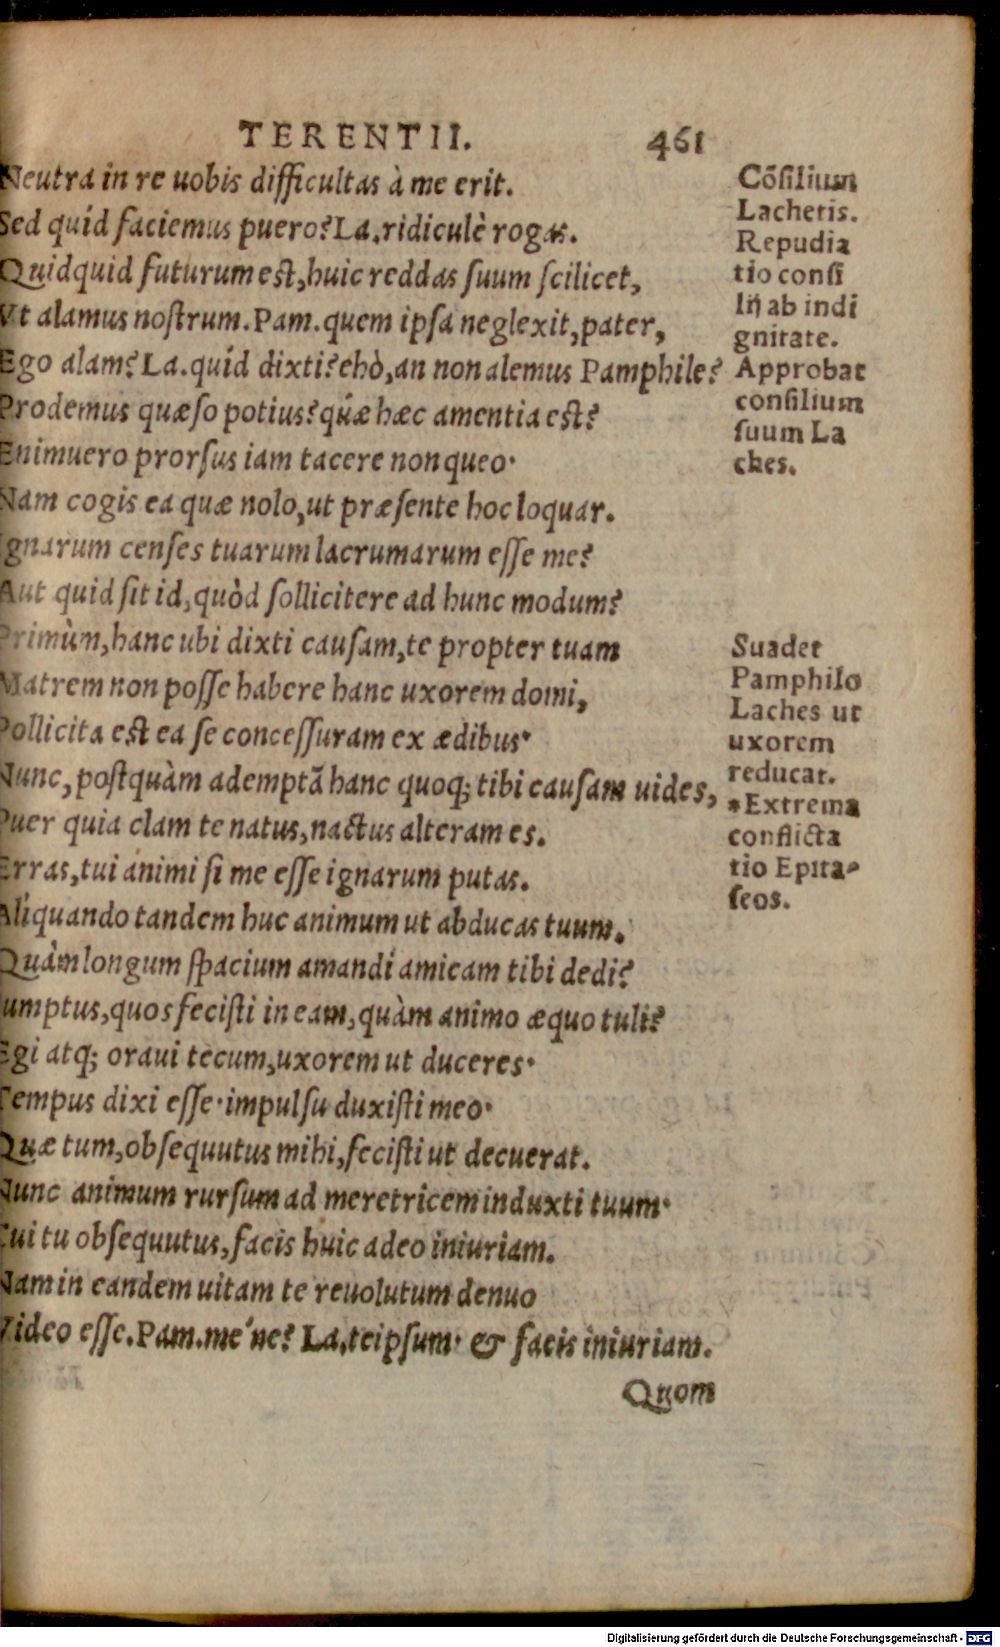 TERENTII. 461
Neutra in re uobis difficultas à me erit.
Sed quid faciemus puero? La. ridiculè rogas.
Quidquid futurum est, huic reddas suum scilicet,
Vt alamus nostrum. Pam. quem ipsa neglexit, pater,
Ego alam? La. quid dixti? ehò, an non alemus Pamphile?
Prodemus quæso potius? quæ hæc amentia est?
Enimuero prorsus iam tacere non queo·
Nam cogis ea quæ nolo, ut præsente hoc loquar.
Ignarum censes tuarum lacrumarum esse me?
Aut quid sit id, quòd sollicitere ad hunc modum?
Primùm, hanc ubi dixti causam, te propter tuam
Matrem non posse habere hanc uxorem domi,
Pollicita est ea se concessuram ex ædibus·
Nunc, postquàm ademptā hanc quoq; tibi causam uides,
Puer quia clam te natus, nactus alteram es.
Erras, tui animi si me esse ignarum putas.
Aliquando tandem huc animum ut abducas tuum.
Quàm longum spacium amandi amicam tibi dedi?
Sumptus, quos fecisti in eam, quàm animo æquo tuli?
Egi atq; oraui tecum, uxorem ut duceres·
Tempus dixi esse· impulsu duxisti meo·
Quæ tum, obsequutus mihi, fecisti ut decuerat.
Nunc animum rursum ad meretricem induxti tuum·
Cui tu obsequutus, facis huic adeo iniuriam.
Nam in eandem uitam te reuolutum denuo
Video esse. Pam. me'ne? La. teipsum· & facis iniuriam.
Quom
Cōsilium
Lachetis.
Repudia
tio consi
lij ab indi
gnitate.
Approbat
consilium
suum La
ches.
Suadet
Pamphilo
Laches ut
uxorem
reducat.
*Extrema
conflicta
tio Epita-
seos.
Digitalisierung gefördert durch die Deutsche Forschungsgemeinschaft - DFG